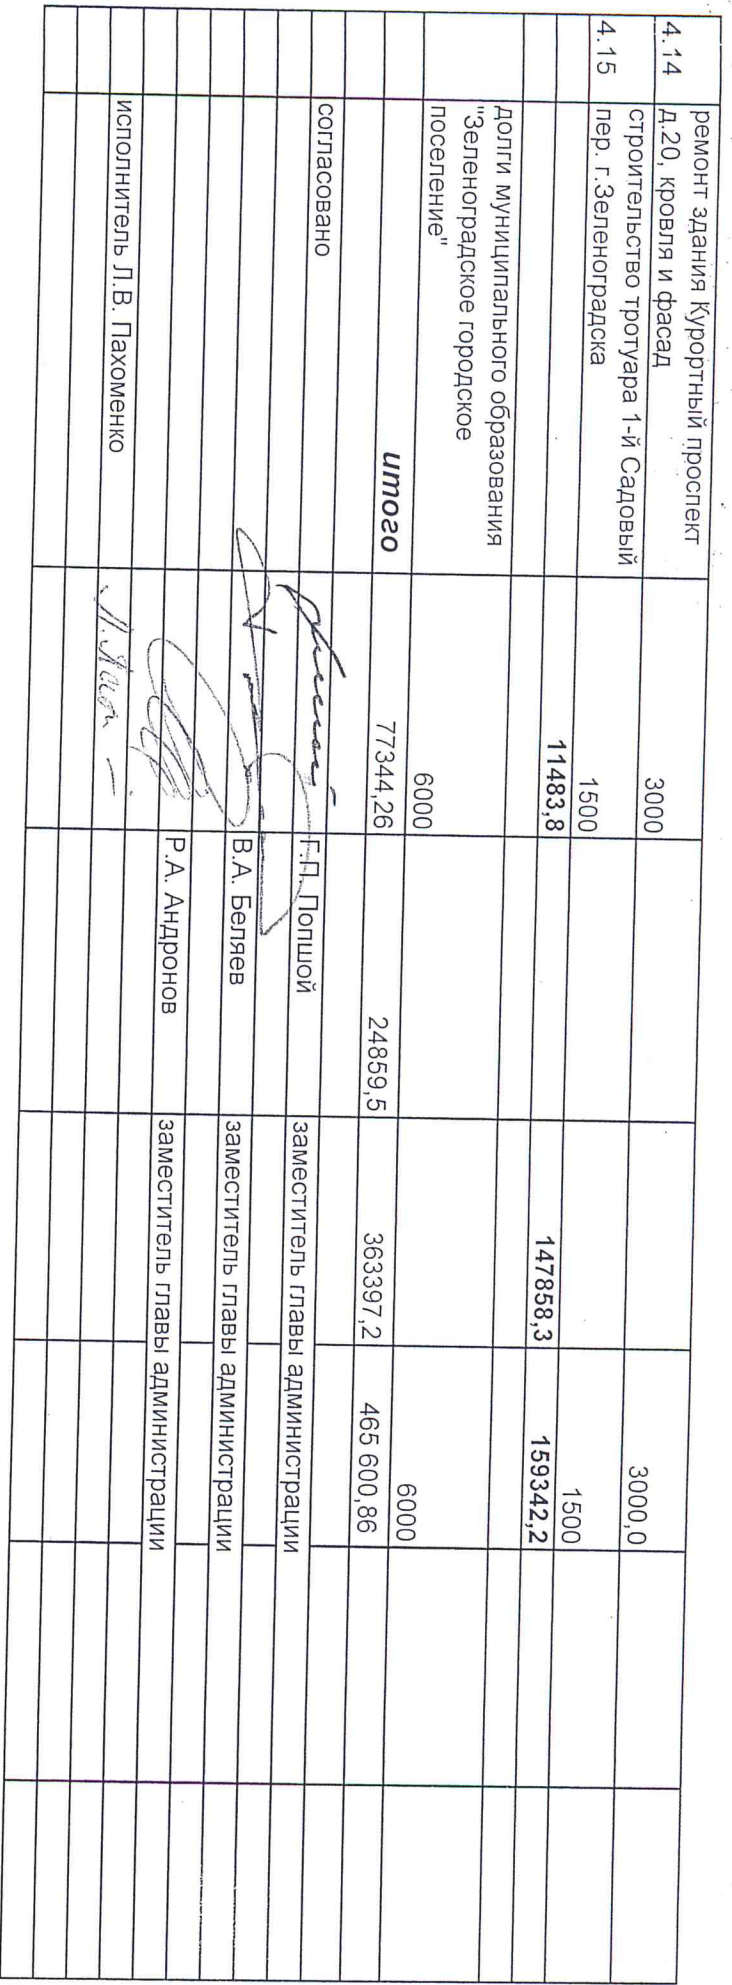 ремонт здания Курортный проспект
4.14 д.20, кровля и фасад 3000 3000,0
строительство тротуара 1-й Садовый
4.15 пер. г.Зеленоградска 1500 1500
11483,8 147858,3 159342,2
долги муниципального образования
"Зеленоградское городское
поселение" 6000 6000
итого 77344,26 24859,5 363397,2 465 600,86
согласовано Г.П. Попшой заместитель главы администрации
В.А. Беляев заместитель главы администрации
Р.А. Андронов заместитель главы администрации
исполнитель Л.В. Пахоменко